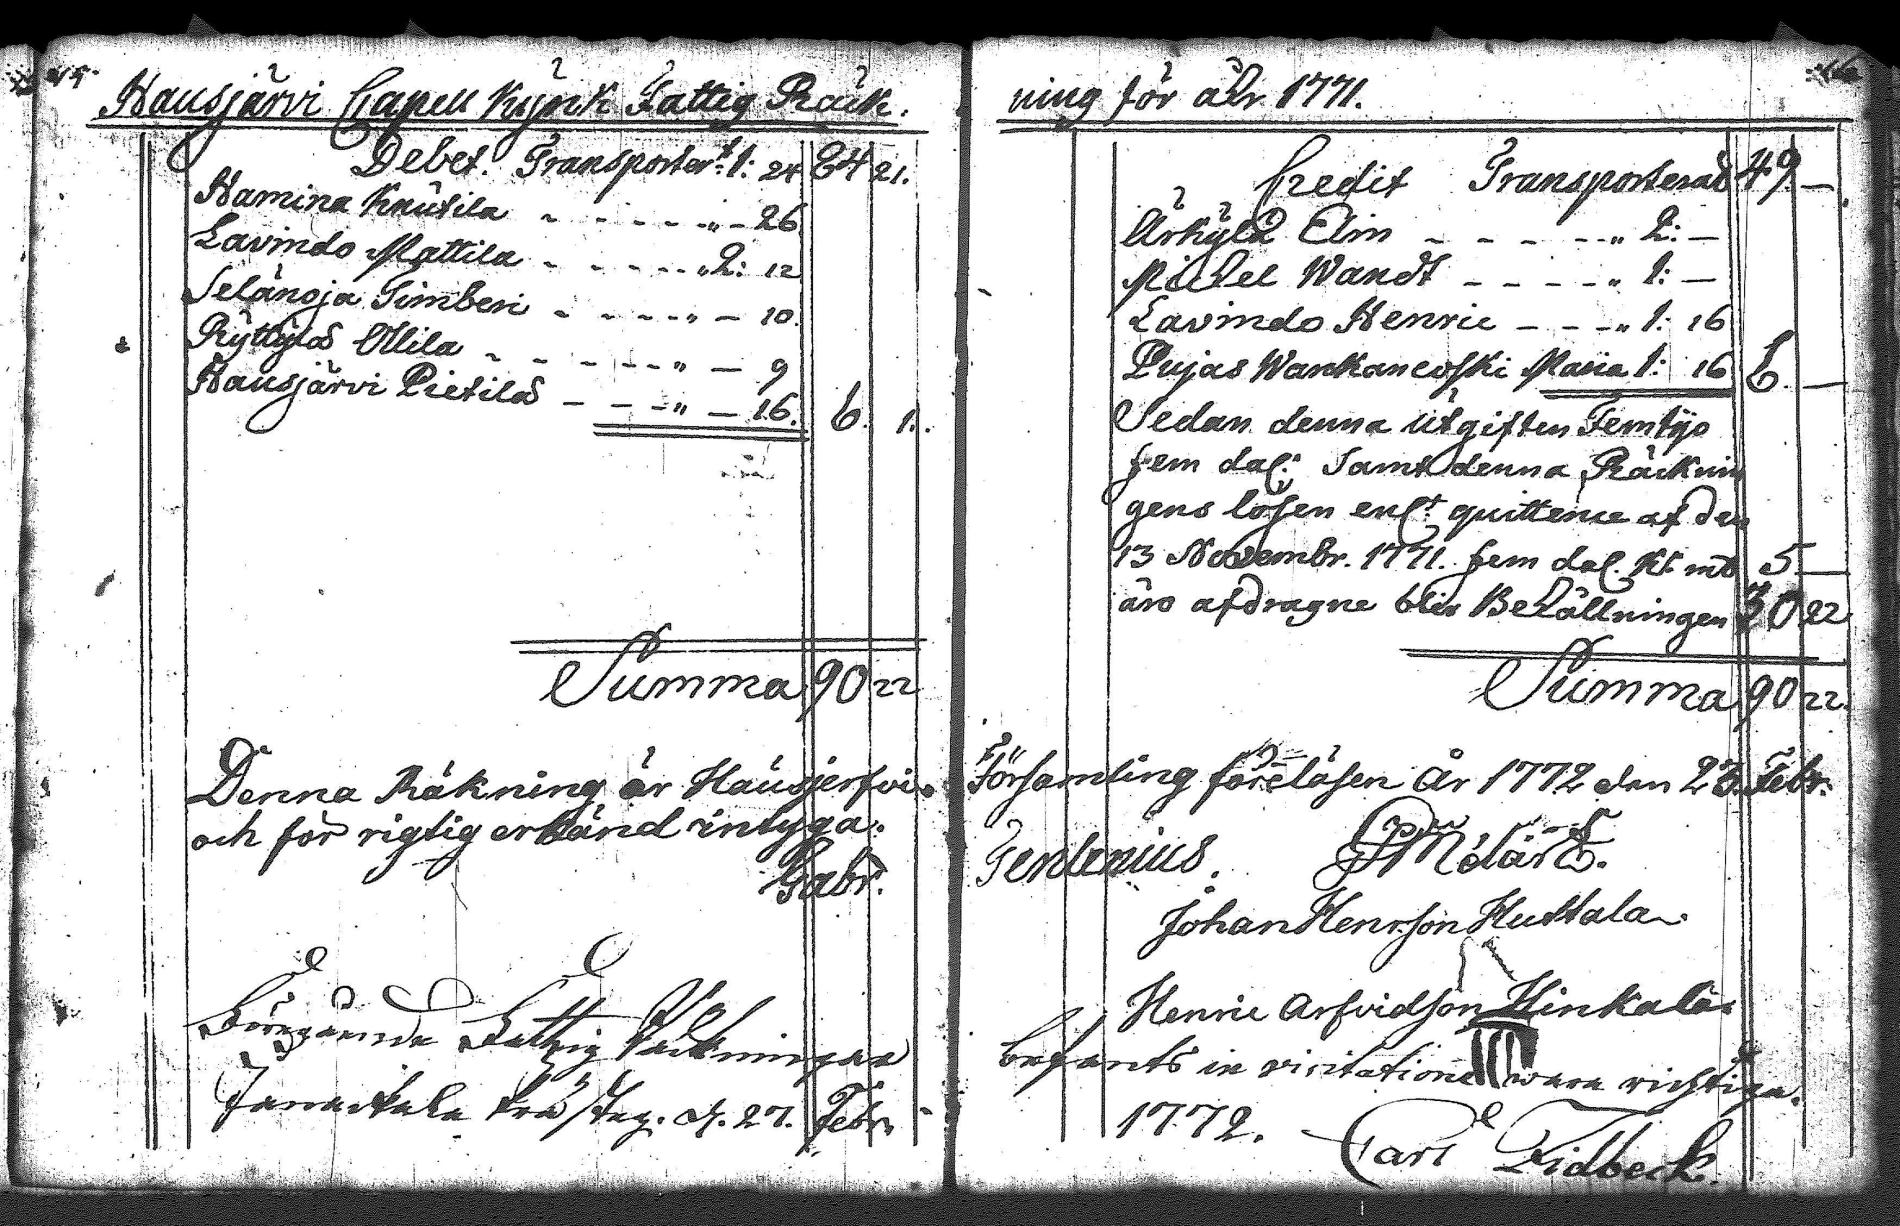 Hausjärvi Capell Kyrck Fattig Räck:
Debet. Transporter:t 1: 24 84 21.
Hamina Knutila - - - - - „ - 26
Lavindo Mattila - - - - - „ 2: 12
Selänoja Timberi - - - - „ - 10.
Ryttylä Ollila - - - - - „ - 9
Hausjärvi Pietilä - - - „ - 16. 6. 1.
Summa 90 22
Denna Räkning är Hausjerfvi
och för rigtig erkänd intyga.
Gabr.
Fattig Räkningar
Janackala d. 27. Febr.
ning för åhr 1771.
Credit Transporterad 49 -
Arkylä Elin - - - - - „ 2: -
Michel Wandt - - - - - „ 1: -
Lavindo Henric - - - „ 1: 16
Pujas Wankancoski Maria 1: 16 6. -
Sedan denna utgiften Femtijo
fem dal: Samt denna Räcknin
gens lösen enl:t quittence af den
13 Novembr. 1771. fem dal. Kt mt 5 -
äro afdragne blir Behållningen 30 22
Summa 90 22.
Församling föreläsen År 1772 den 23. Febr.
Johan Henrsson Huttala
Henric Arfvidson Hinkala
befants in visitatione wara richtiga.
1772.
Carl Lidbeck.